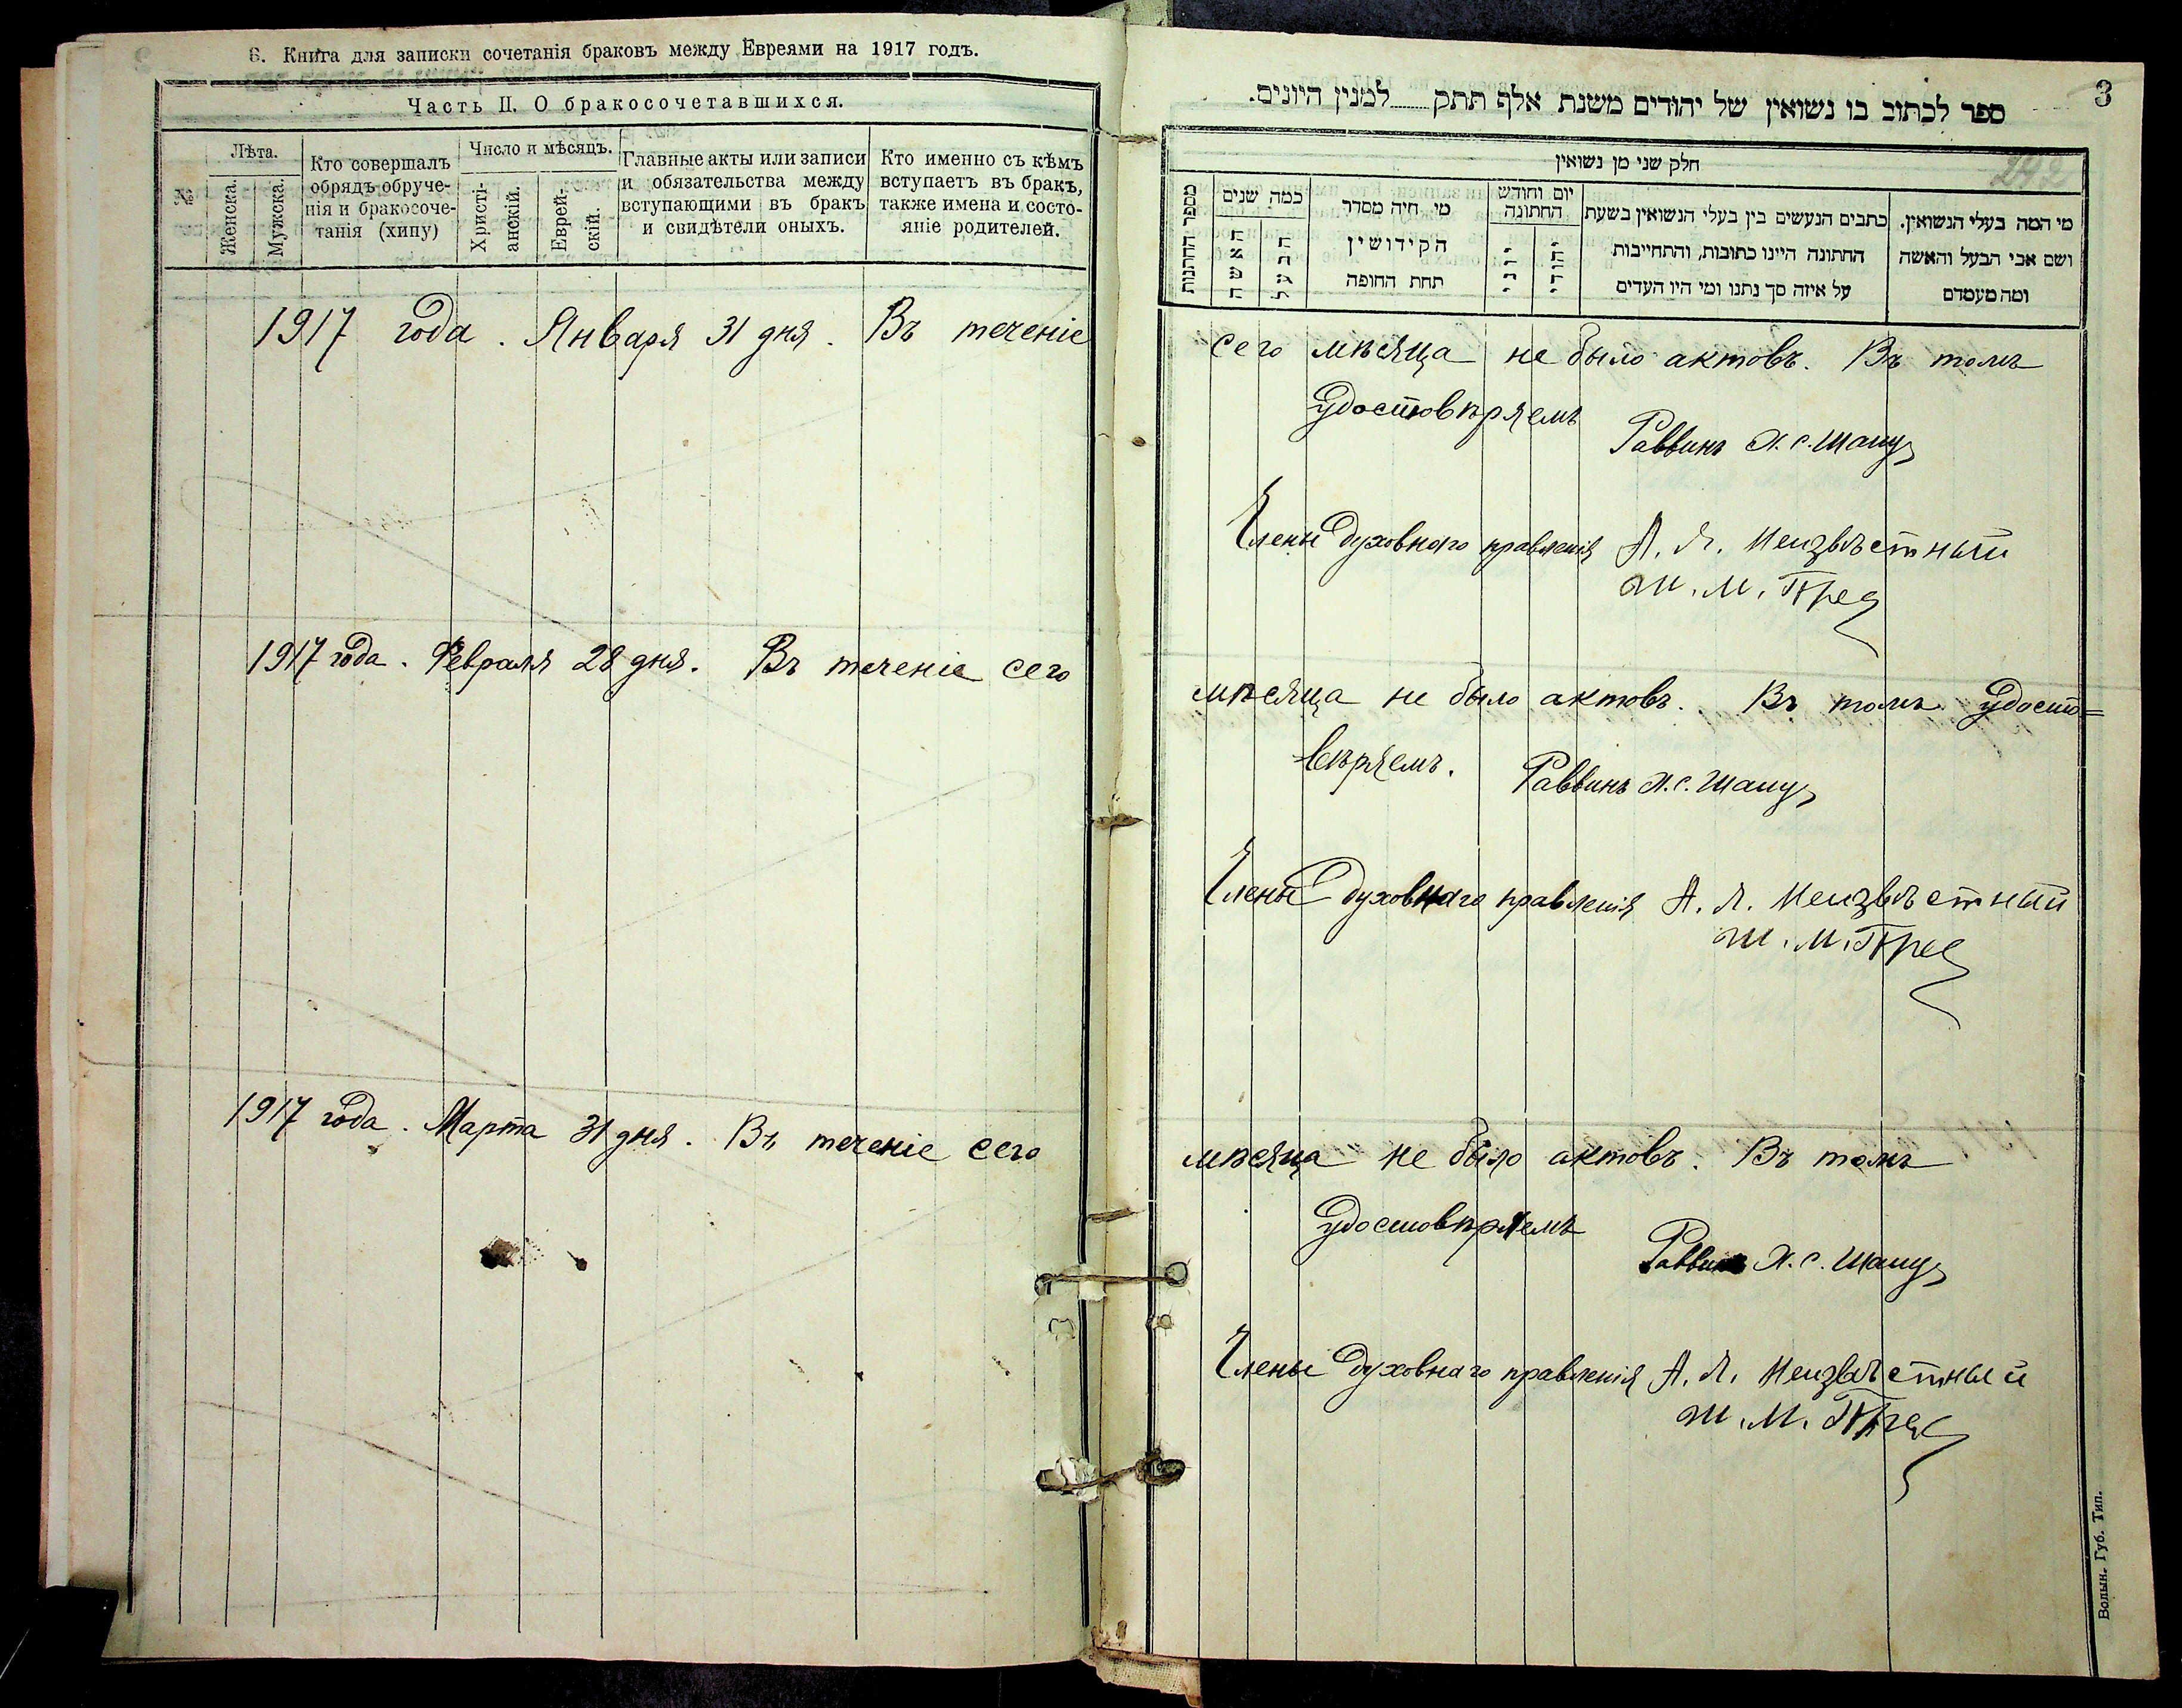 Б. Книга для записки сочетанія браковъ между Евреями на 1917 годъ.
Часть II. О бракосочетавшихся.
№
Лѣта.
Женска.
Мужска.
Кто совершалъ
обрядъ обруче-
нія и бракосоче-
танія (хипу)
Число и мѣсяцъ.
Христі-
анскій.
Еврей-
скій.
Главные акты или записи
и обязательства между
вступающими въ бракъ
и свидѣтели оныхъ.
Кто именно съ кѣмъ
вступаетъ въ бракъ,
также имена и состо-
яніе родителей.
1917 года. Января 31 дня. Въ теченіе
1917 года. Февраля 28 дня. Въ теченіе сего
1917 года. Марта 31 дня. Въ теченіе сего
3
ספר לכתוב בו נשואין של יהודים משנת אלף תתק למנין היונים.
242
חלק שני מן נשואין
מספר החתונות
כמה שנים
האשה
הבעל
מי היה מסדר
הקידושין
תחת החופה
יום וחודש
החתונה
יוני
יהודי
כתבים הנעשים בין בעלי הנשואין בשעת
החתונה היינו כתובות, והתחייבות
על איזה סך נתנו ומי היו העדים
מי המה בעלי הנשואין.
ושם אבי הבעל והאשה
ומה מעמדם
сего мѣсяца не было актовъ. Въ томъ
удостовѣряемъ
Раввинъ
Члены духовнаго правленія А. Л. Неизвѣстный
мѣсяца не было актовъ. Въ томъ удосто=
вѣряемъ.
Раввинъ
Члены духовнаго правленія А. Л. Неизвѣстный
мѣсяца не было актовъ. Въ томъ
удостовѣряемъ
Раввинъ
Члены духовнаго правленія А. Л. Неизвѣстный
Волын. Губ. Тип.